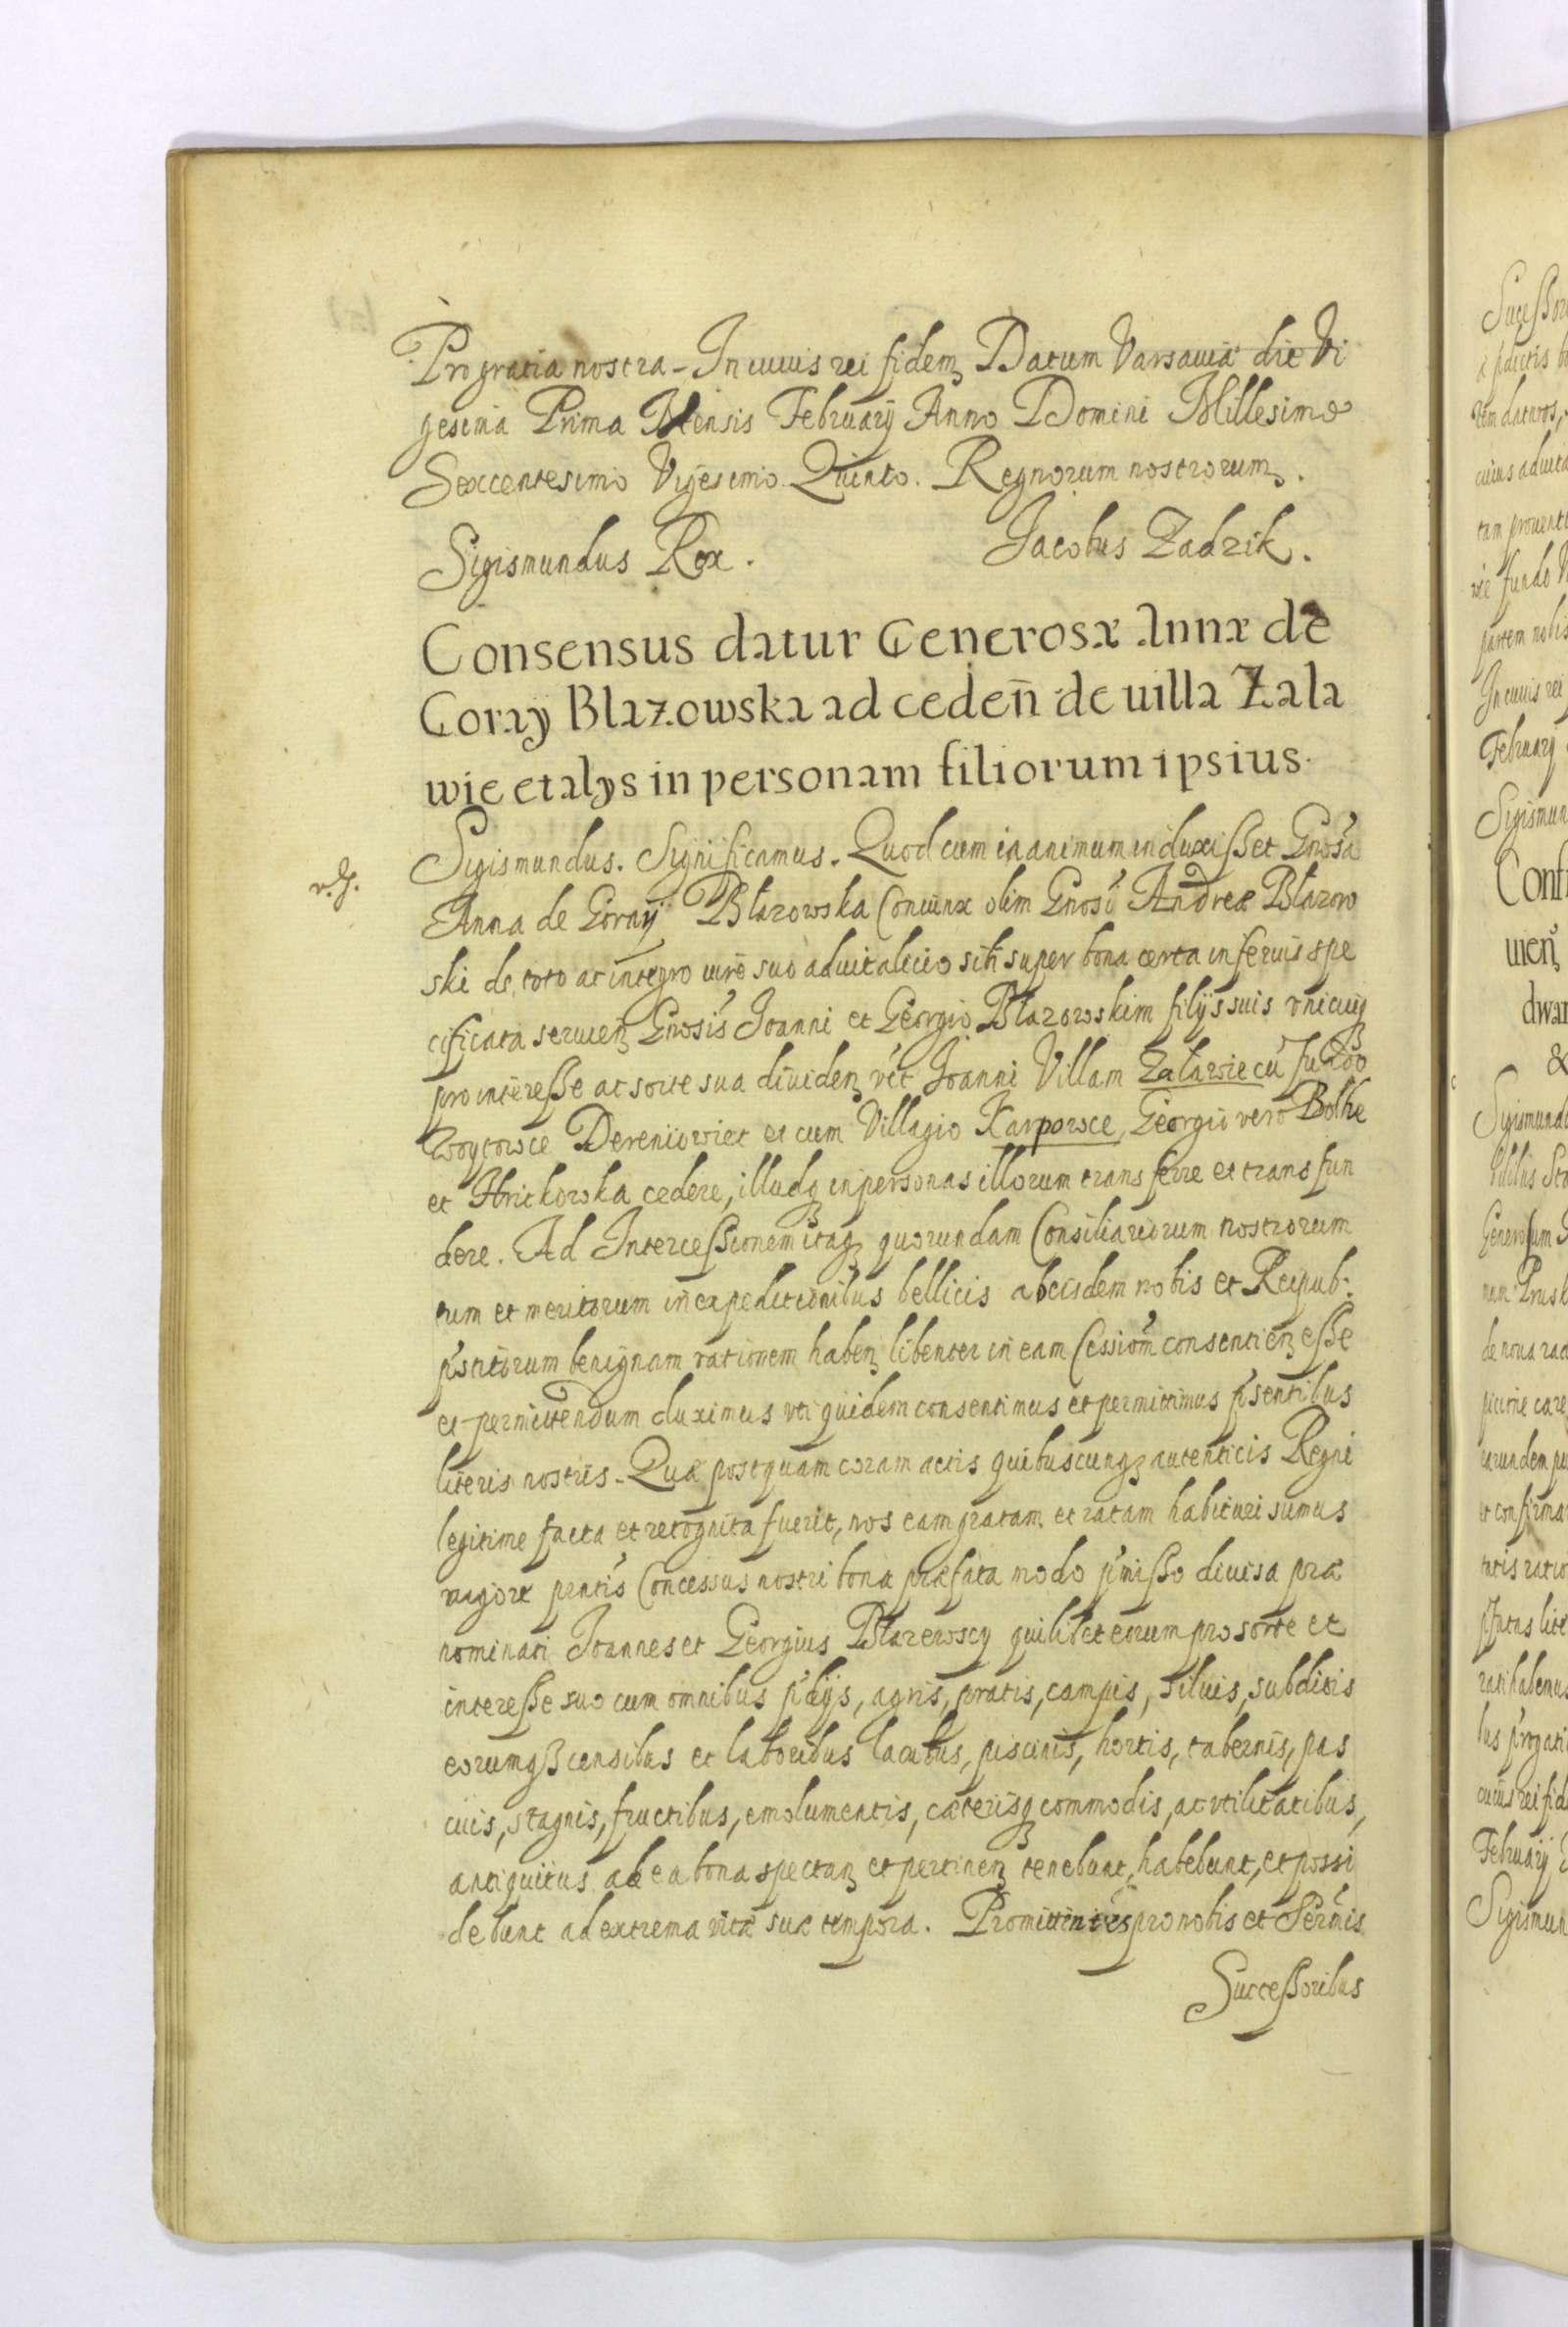 Pro gratia nostra - In cuius rei fidem Datum Varsauiæ die Vi
gesima Prima Mensis Februarij Anno Domini Millesimo
Sexcentesimo Vigesimo Quinto. Regnorum nostrorum.
Sigismundus Rex. Jacobus Zadzik.
Consensus datur Generosæ Annæ de
Goray Blazowska ad ceden̄ de uilla Zala
wie et alys in personam filiorum ipsius.
Sigismundus. Significamus. Quod cum in animum induxisset Gnosa
Anna de Goraij Błazowska Coniunx olim Gnosi Andreæ Błazow
ski de toto ac integro iure suo aduitalicio sibi super bona certa inferius spe
cificata seruien Gnosis Joanni et Georgio Błazowskim filijs suis vnicuiq
pro interesse ac sorte sua diuiden vt Joanni Villam Załawie cū fundo
Woytowce Dereniowiet et cum Villagio Karpowce, Georgio vero Bothe
et Hrickowka cedere, illudq in personas illorum transferre et transfun
dere. Ad Intercessionem itaq quorundam Consiliariorum nostrorum
tum et meritorum in expeditionibus bellicis ab eisdem nobis et Reipub:
pstitorum benignam rationem haben libenter in eam Cessiom consentien esse
et permittendum duximus vti quidem consentimus et permittimus psentibus
literis nostris - Quæ postquam coram actis quibuscunq autenticis Regni
legitime facta et recognita fuerit, nos eam gratam et ratam habituri sumus
uigore pentis Concessus nostri bona præfata modo pmisso diuisa præ
nominati Joannes et Georgius Błazewscy quilibet eorum pro sorte et
interesse suo cum omnibus pdijs, agris, pratis, campis, siluis, subditis
eorumq censibus et laboribus lacubus, piscinis, hortis, tabernis, pas
cuis, stagnis, fructibus, emolumentis, cæterisq commodis, ac vtilitatibus,
antiquitus ad ea bona spectan et pertinen tenebunt, habebunt, et possi
debunt ad extrema vitæ suæ tempora. Promittentes pro nobis et Sermis
Successoribus